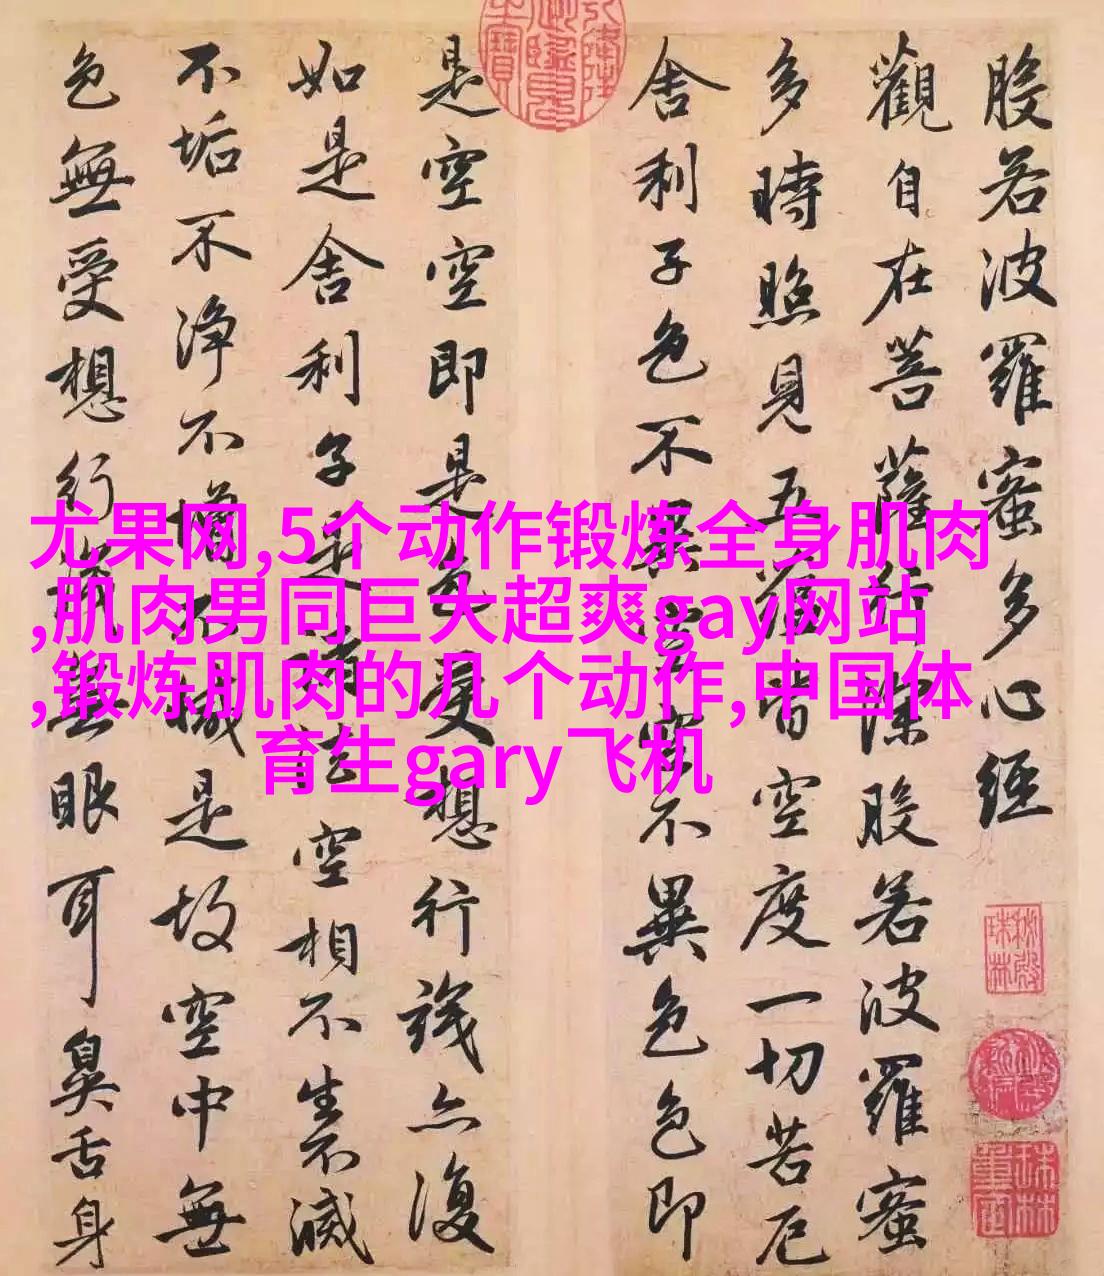 般若波羅蜜多心經
觀自在菩薩行深般若波羅蜜
多時照見五蘊皆空度一切苦厄
舍利子色不異空空不異色色即
是空空即是色受想行識亦復
如是舍利子是諸法空相不生不滅
不垢不净不增不減是故空中無
色無受想行識無眼耳鼻舌身
尤果网,5个动作锻炼全身肌肉
,肌肉男同巨大超爽gay网站
,锻炼肌肉的几个动作,中国体
育生gary飞机